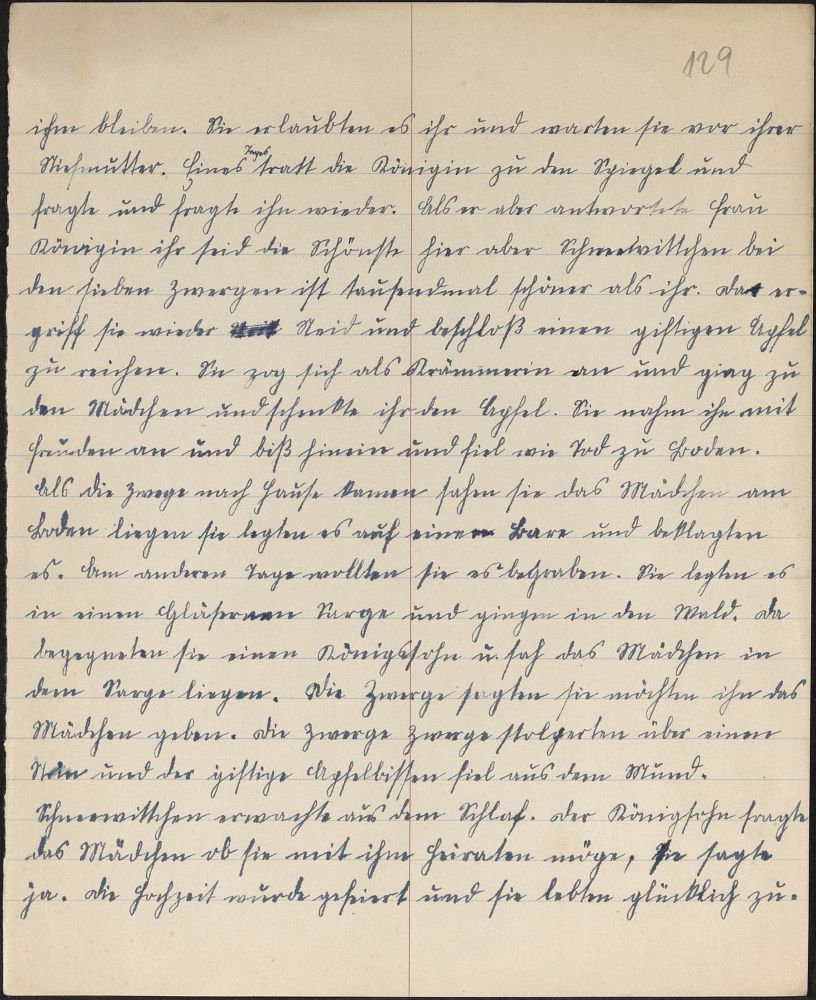 129
ihm bleiben. Sie erlaubten es ihr und warten sie vor ihrer
Stiefmutter. Eines Tages tratt die Königin zu den Spiegel und
fragte und fragte ihn wieder. Als er aber antwortete Frau
Königin ihr seid die Schönste hier aber Schneewittchen bei
den sieben Zwergen ist tausendmal schöner als ihr. Da er-
griff sie wieder Neid und beschloß einen giftigen Apfel
zu reichen. Sie zog sich als Krämmerin an und ging zu
den Mädchen und schenkte ihr den Apfel. Sie nahm ihn mit
freuden an und biß hinein und fiel wie Tod zu Boden.
Als die Zwege nach Hause kamen sahen sie das Mädchen am
Boden liegen sie legten es auf einer Bare und beklagten
es. Am anderen Tage wollten sie es begraben. Sie legten es
in einen Gläsernen Sarge und gingen in den Wald. Da
begegneten sie einen Königssohn u. sah das Mädchen in
dem Sarge liegen. Die Zwerge sagten sie möchten ihn das
Mädchen geben. Die Zwerge Zwerge stolperten über einen
Stein und der giftige Apfelbissen fiel aus dem Mund.
Schneewittchen erwachte aus dem Schlaf. Der Königsohn fragte
das Mädchen ob sie mit ihm heiraten möge, sie sagte
ja. Die Hochzeit wurde gefeiert und sie lebten glücklich zu-